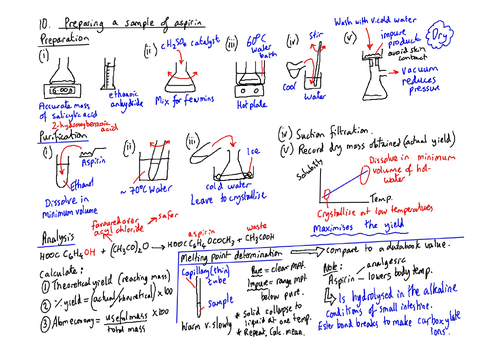 10. Preparing a sample of aspirin
Preparation
(i)
Accurate mass
of salicylic acid
2-hydroxybenzoic
acid
ethanoic
anhydride
(ii) cH2SO4 catalyst
Mix for few mins
(iii) 60°C
Water
bath
Hot plate
(iv) stir
Cool
Water
(v)
Wash with v.cold water
impure
product
avoid skin
contact
Dry
Vacuum
reduces
pressure
Purification
(i)
Aspirin
Ethanol
Dissolve in
minimum volume
(ii)
~70°C Water
(iii)
Ice
cold water
Leave to crystallise
(iv) Suction filtration.
(v) Record dry mass obtained (actual yield)
Solubility
Dissolve in minimum
volume of hot
water
Temp.
Crystallise at low temperatures
Maximises the yield
Analysis
favoured over
acyl chloride
safer
aspirin
waste
HOOC C6H4OH + (CH3CO)2O → HOOC C6H4OCOCH3 + CH3COOH
Calculate:
① Theoretical yield (reacting mass)
② %yield = (actual/theoretical) x100
③ Atom economy = useful mass x100
total mass
Melting point determination
compare to a databook value.
Capillary (thin)
tube
sample
Warm v. slowly
Pure = clear M.pt.
Impure = range M.pt
below pure.
* Solid collapse to
liquid at one temp.
* Repeat, Calc. mean.
Note:
Aspirin
analgesic
lowers body temp.
Is hydrolysed in the alkaline
Conditions of small intestine.
Ester bond breaks to make carboxylate
ions.